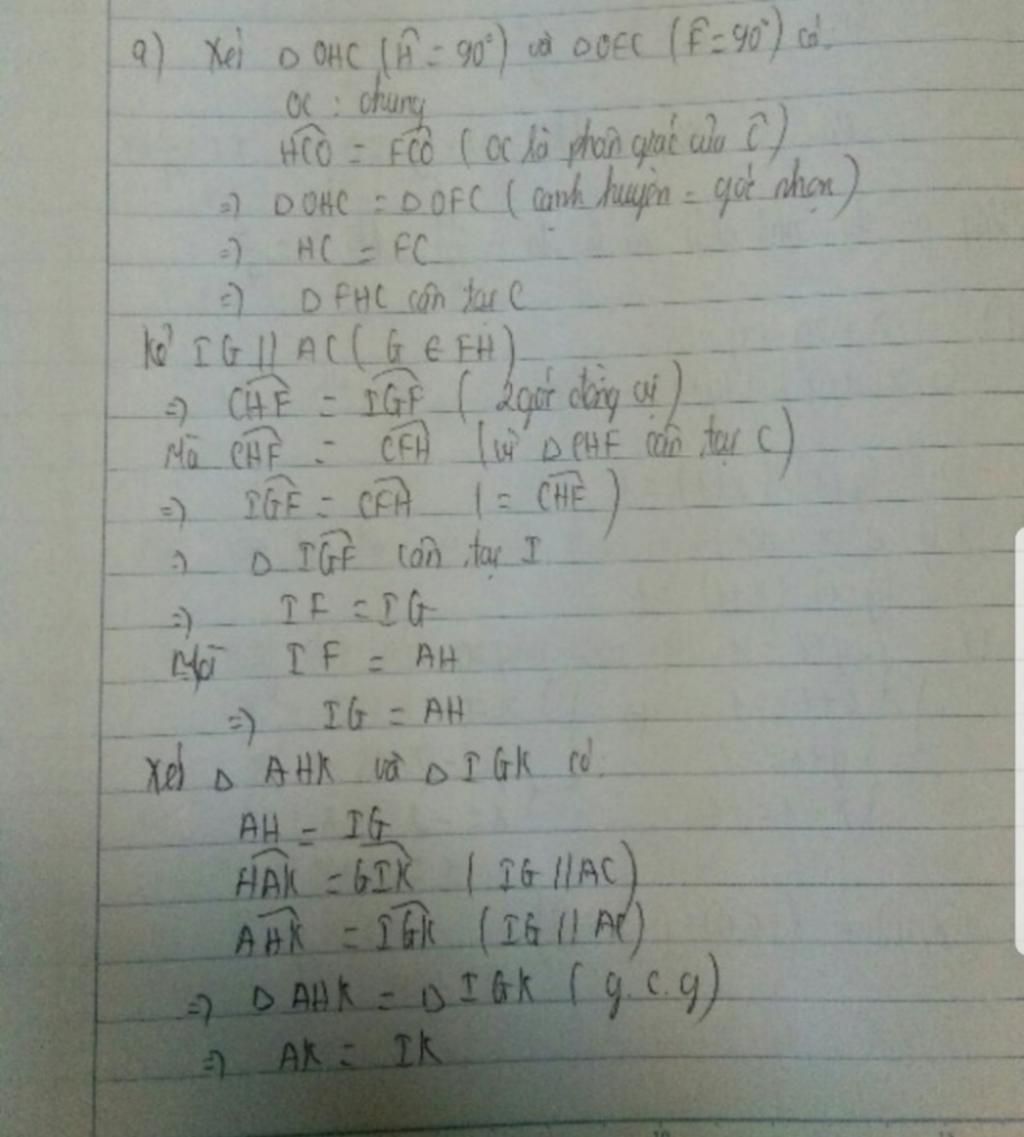 a) Xét Δ OHC (Ĥ = 90°) và Δ OFC (F̂ = 90°) có:
OC : chung
HCO = FCO (OC là phân giác của Ĉ)
=> Δ OHC = Δ OFC (cạnh huyền - góc nhọn)
=> HC = FC
=> Δ FHC cân tại C
Kẻ IG // AC (G ∈ FH)
=> CHF = IGF (2 góc đồng vị)
Mà CHF = CFH (vì Δ CHF cân tại C)
=> IGF = CFH (= CHF)
=> Δ IGF cân tại I
=> IF = IG
Mà IF = AH
=> IG = AH
Xét Δ AHK và Δ IGK có:
AH = IG
HAK = GIK (IG // AC)
AHK = IGK (IG // AC)
=> Δ AHK = Δ IGK (g.c.g)
=> AK = IK